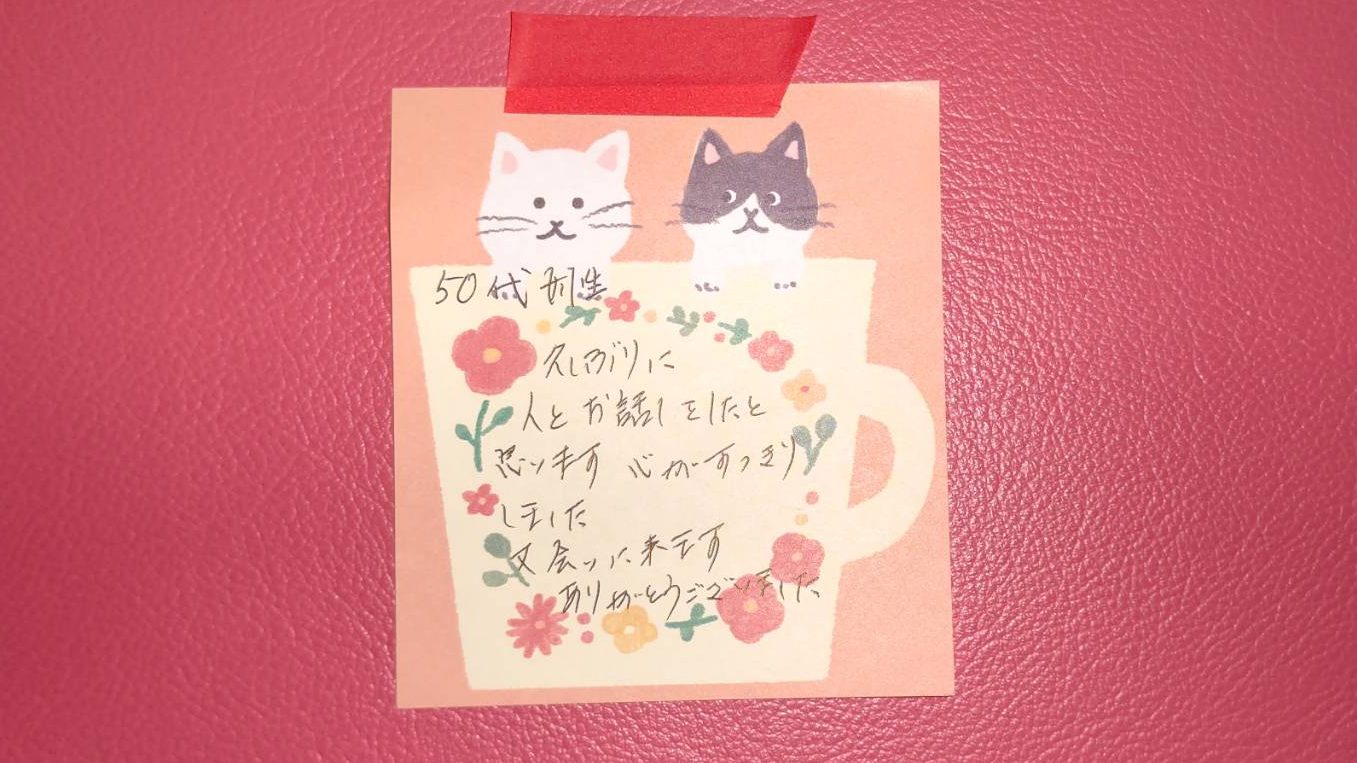 50代 男性
久しぶりに
人とお話しをしたと
思います 心がすっきり
しました
又会いに来ます
ありがとうございました